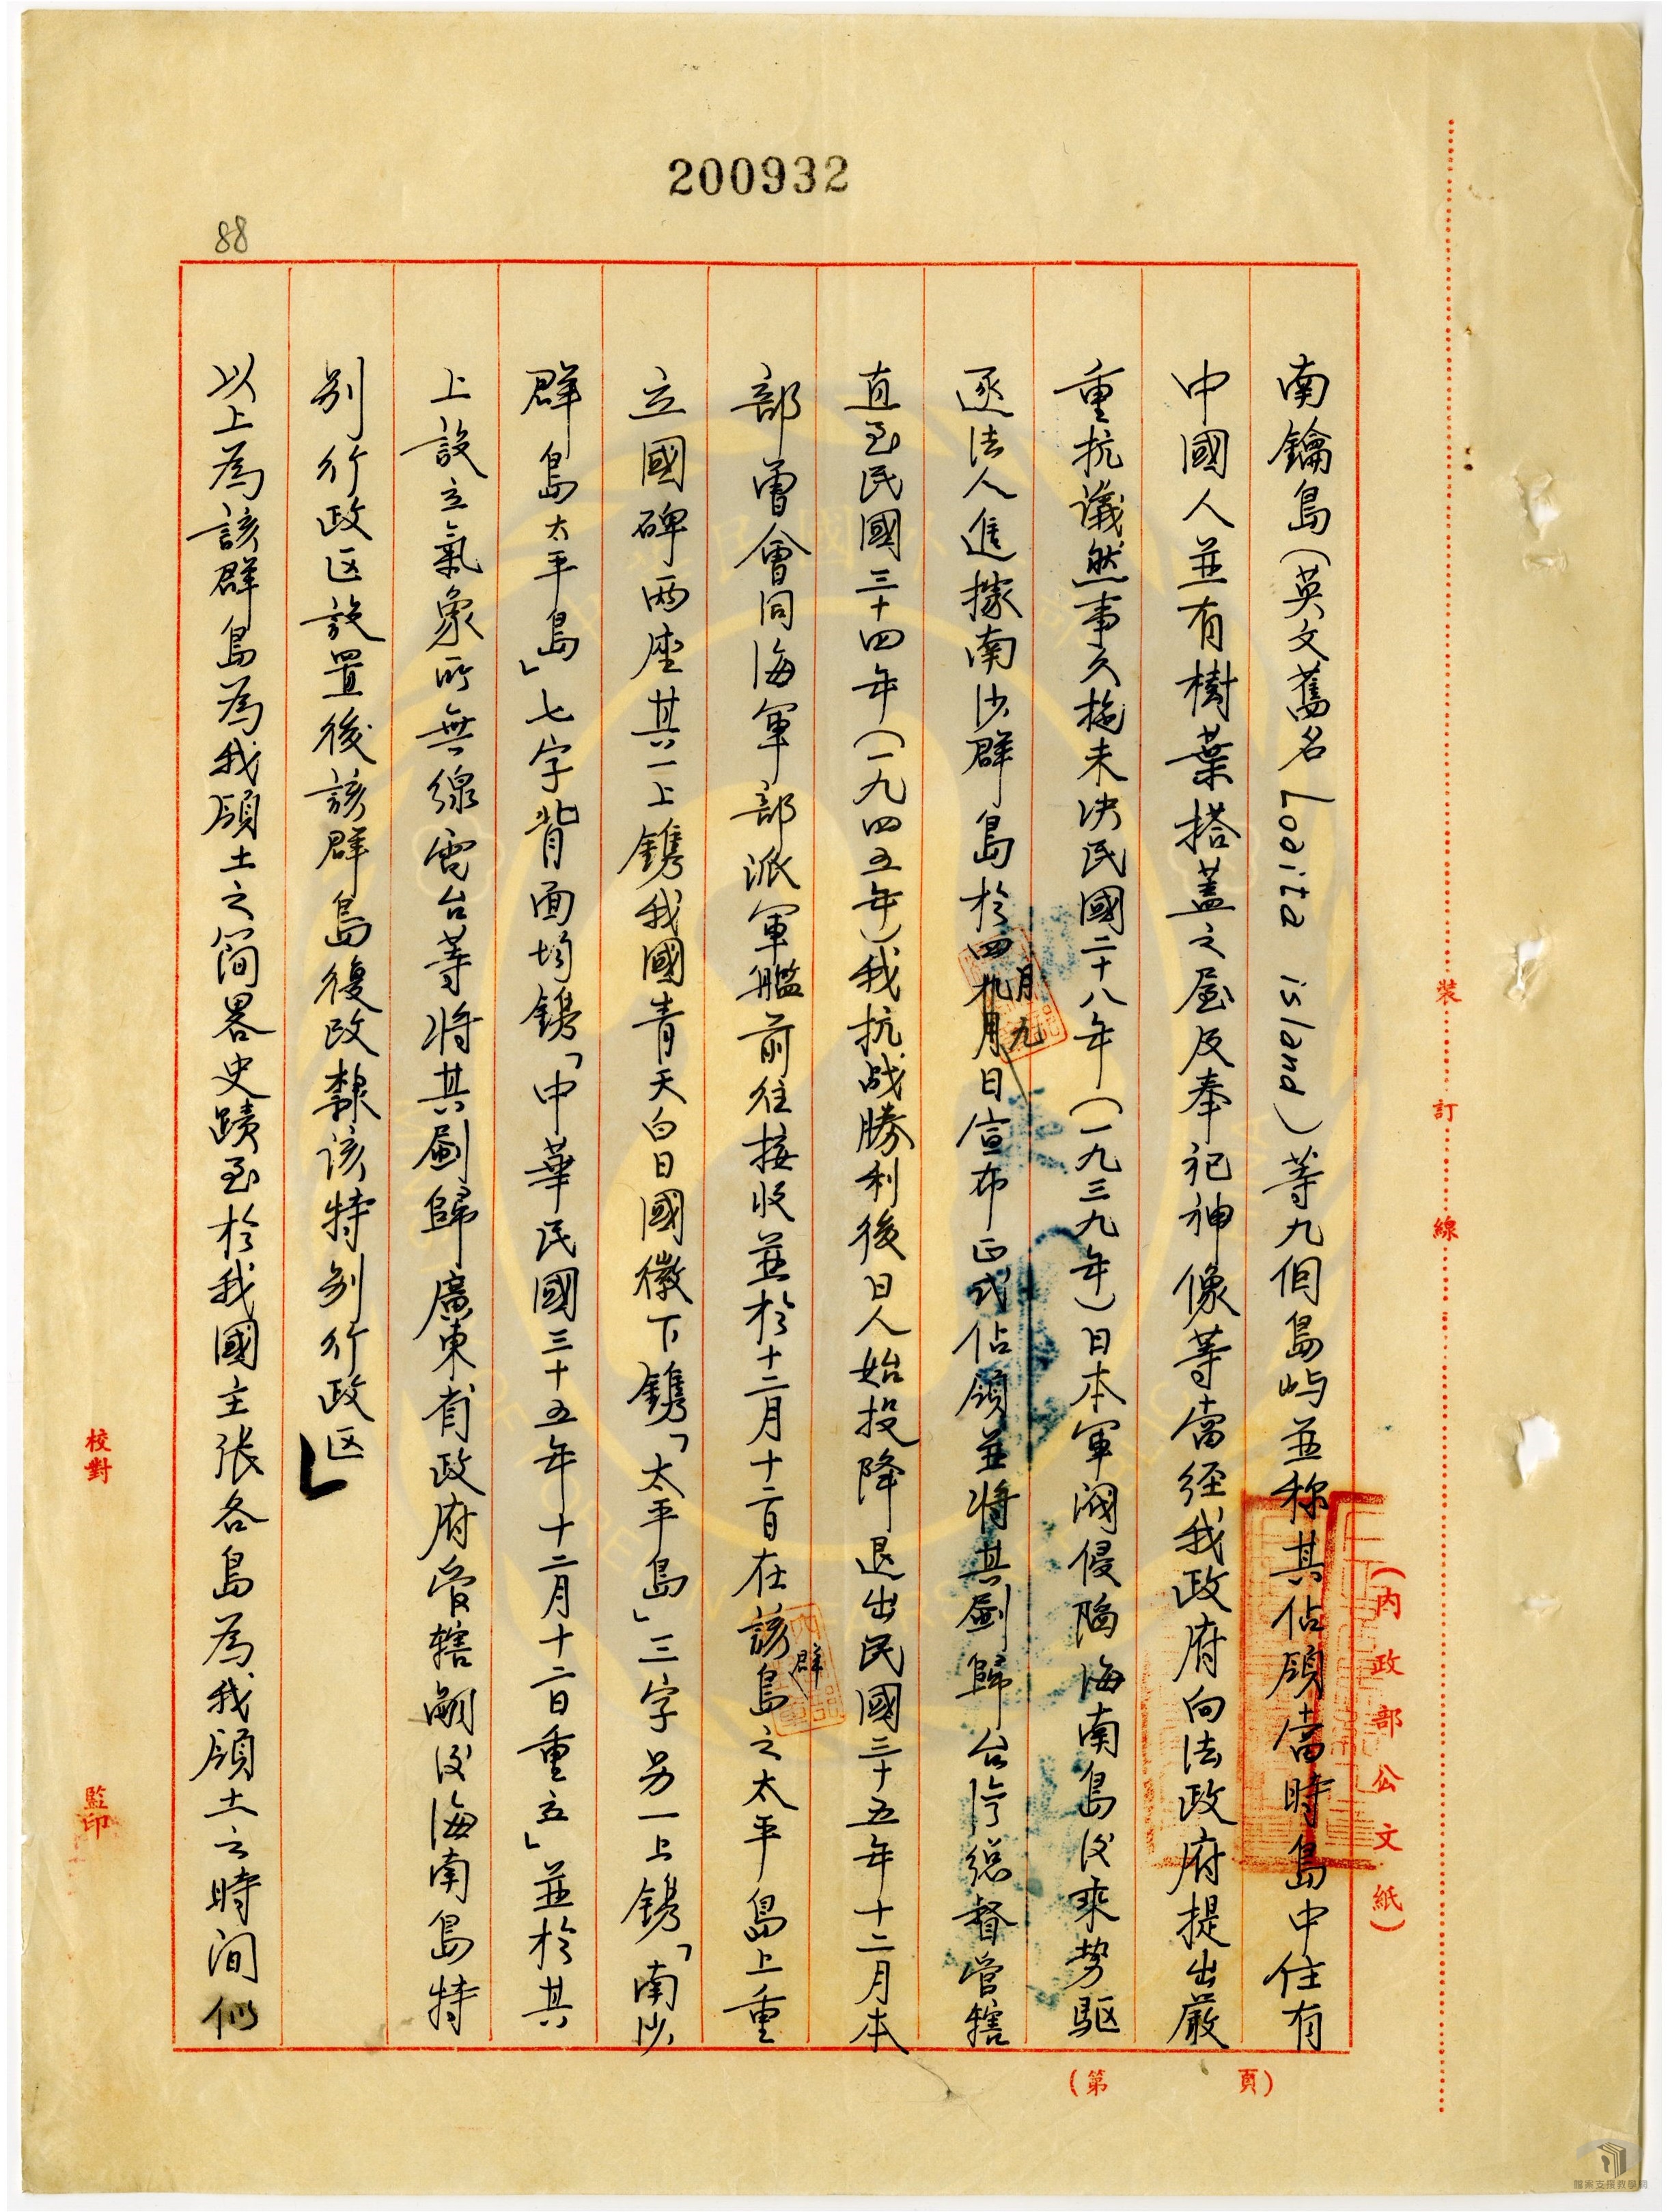 200932
88
裝 訂 線
(內政部公文紙)
南鑰島(英文舊名Loaita island)等九個島屿並称其佔領當時島中住有
中國人並有樹葉搭蓋之屋及奉祀神像等當経我政府向法政府提出嚴
重抗議然事久拖未決民國二十八年(一九三九年)日本軍閥侵陷海南島後乘势駆
逐法人進據南沙群島於四月九日宣布正式佔領並将其劃歸台湾総督管轄
直至民國三十四年(一九四五年)我抗战勝利後日人始投降退出民國三十五年十二月本
部曾會同海軍部派軍艦前往接收並於十二月十二日在該群島之太平島上重
立國碑兩座其一上鐫我國青天白日國徽下鐫「太平島」三字另一上鐫「南沙
群島太平島」七字背面均鐫「中華民國三十五年十二月十二日重立」並於其
上設立氣象所無線電台等将其劃歸廣東省政府管轄嗣後海南島特
别行政区設置後該群島復改隸該特别行政区」
以上為該群島為我領土之簡畧史蹟至於我國主张各島為我領土之時间似
校對
監印
(第 頁)
檔案支援教學網